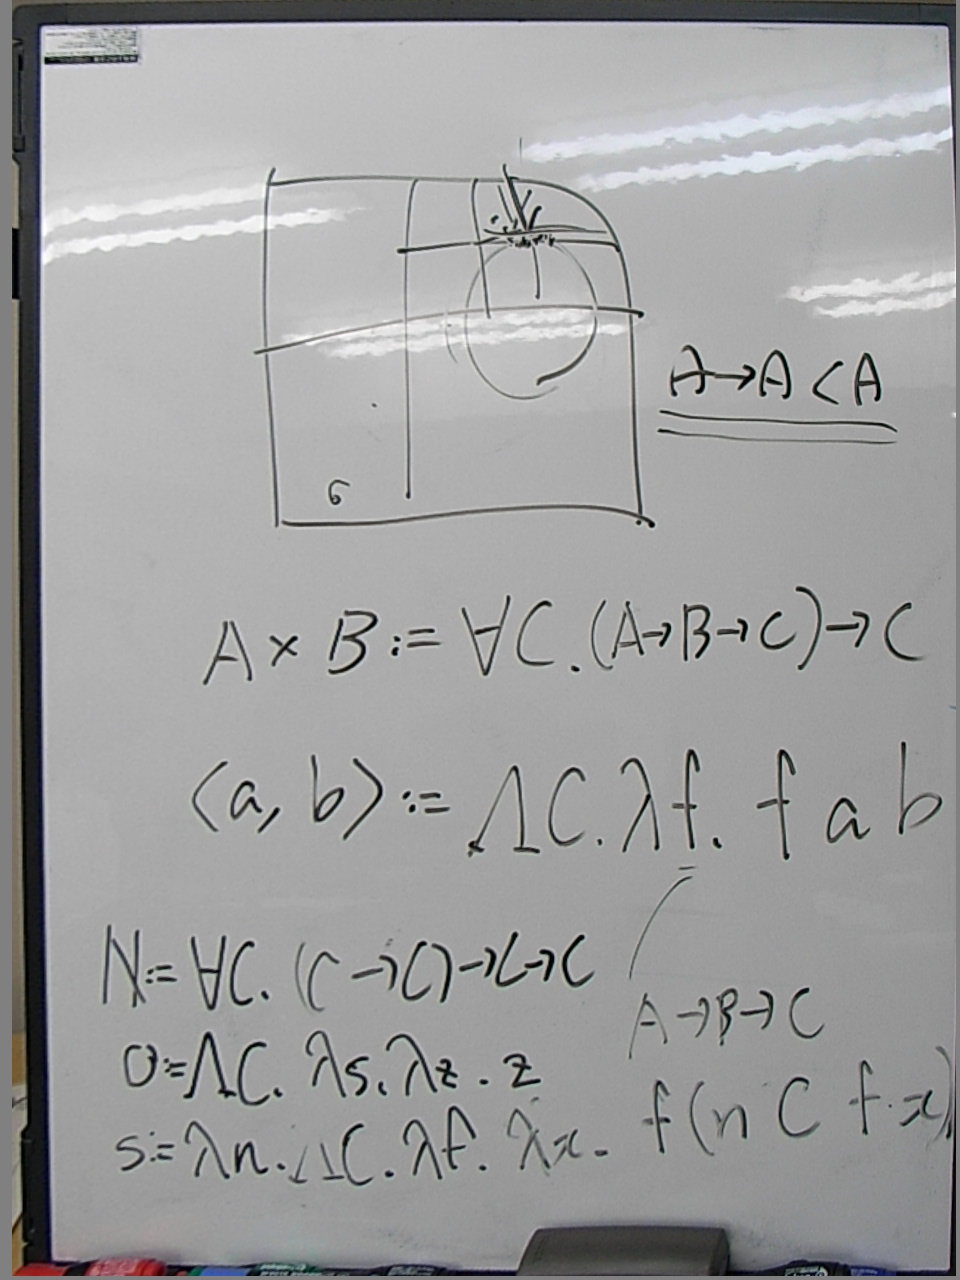 A→A<A
6
A×B:=∀C.(A→B→C)→C
⟨a, b⟩:=ΛC.λf. f a b
N:=∀C.(C→C)→C→C
A→B→C
0:=ΛC. λs.λz.z
s:=λn.ΛC.λf.λx. f(n C f x)